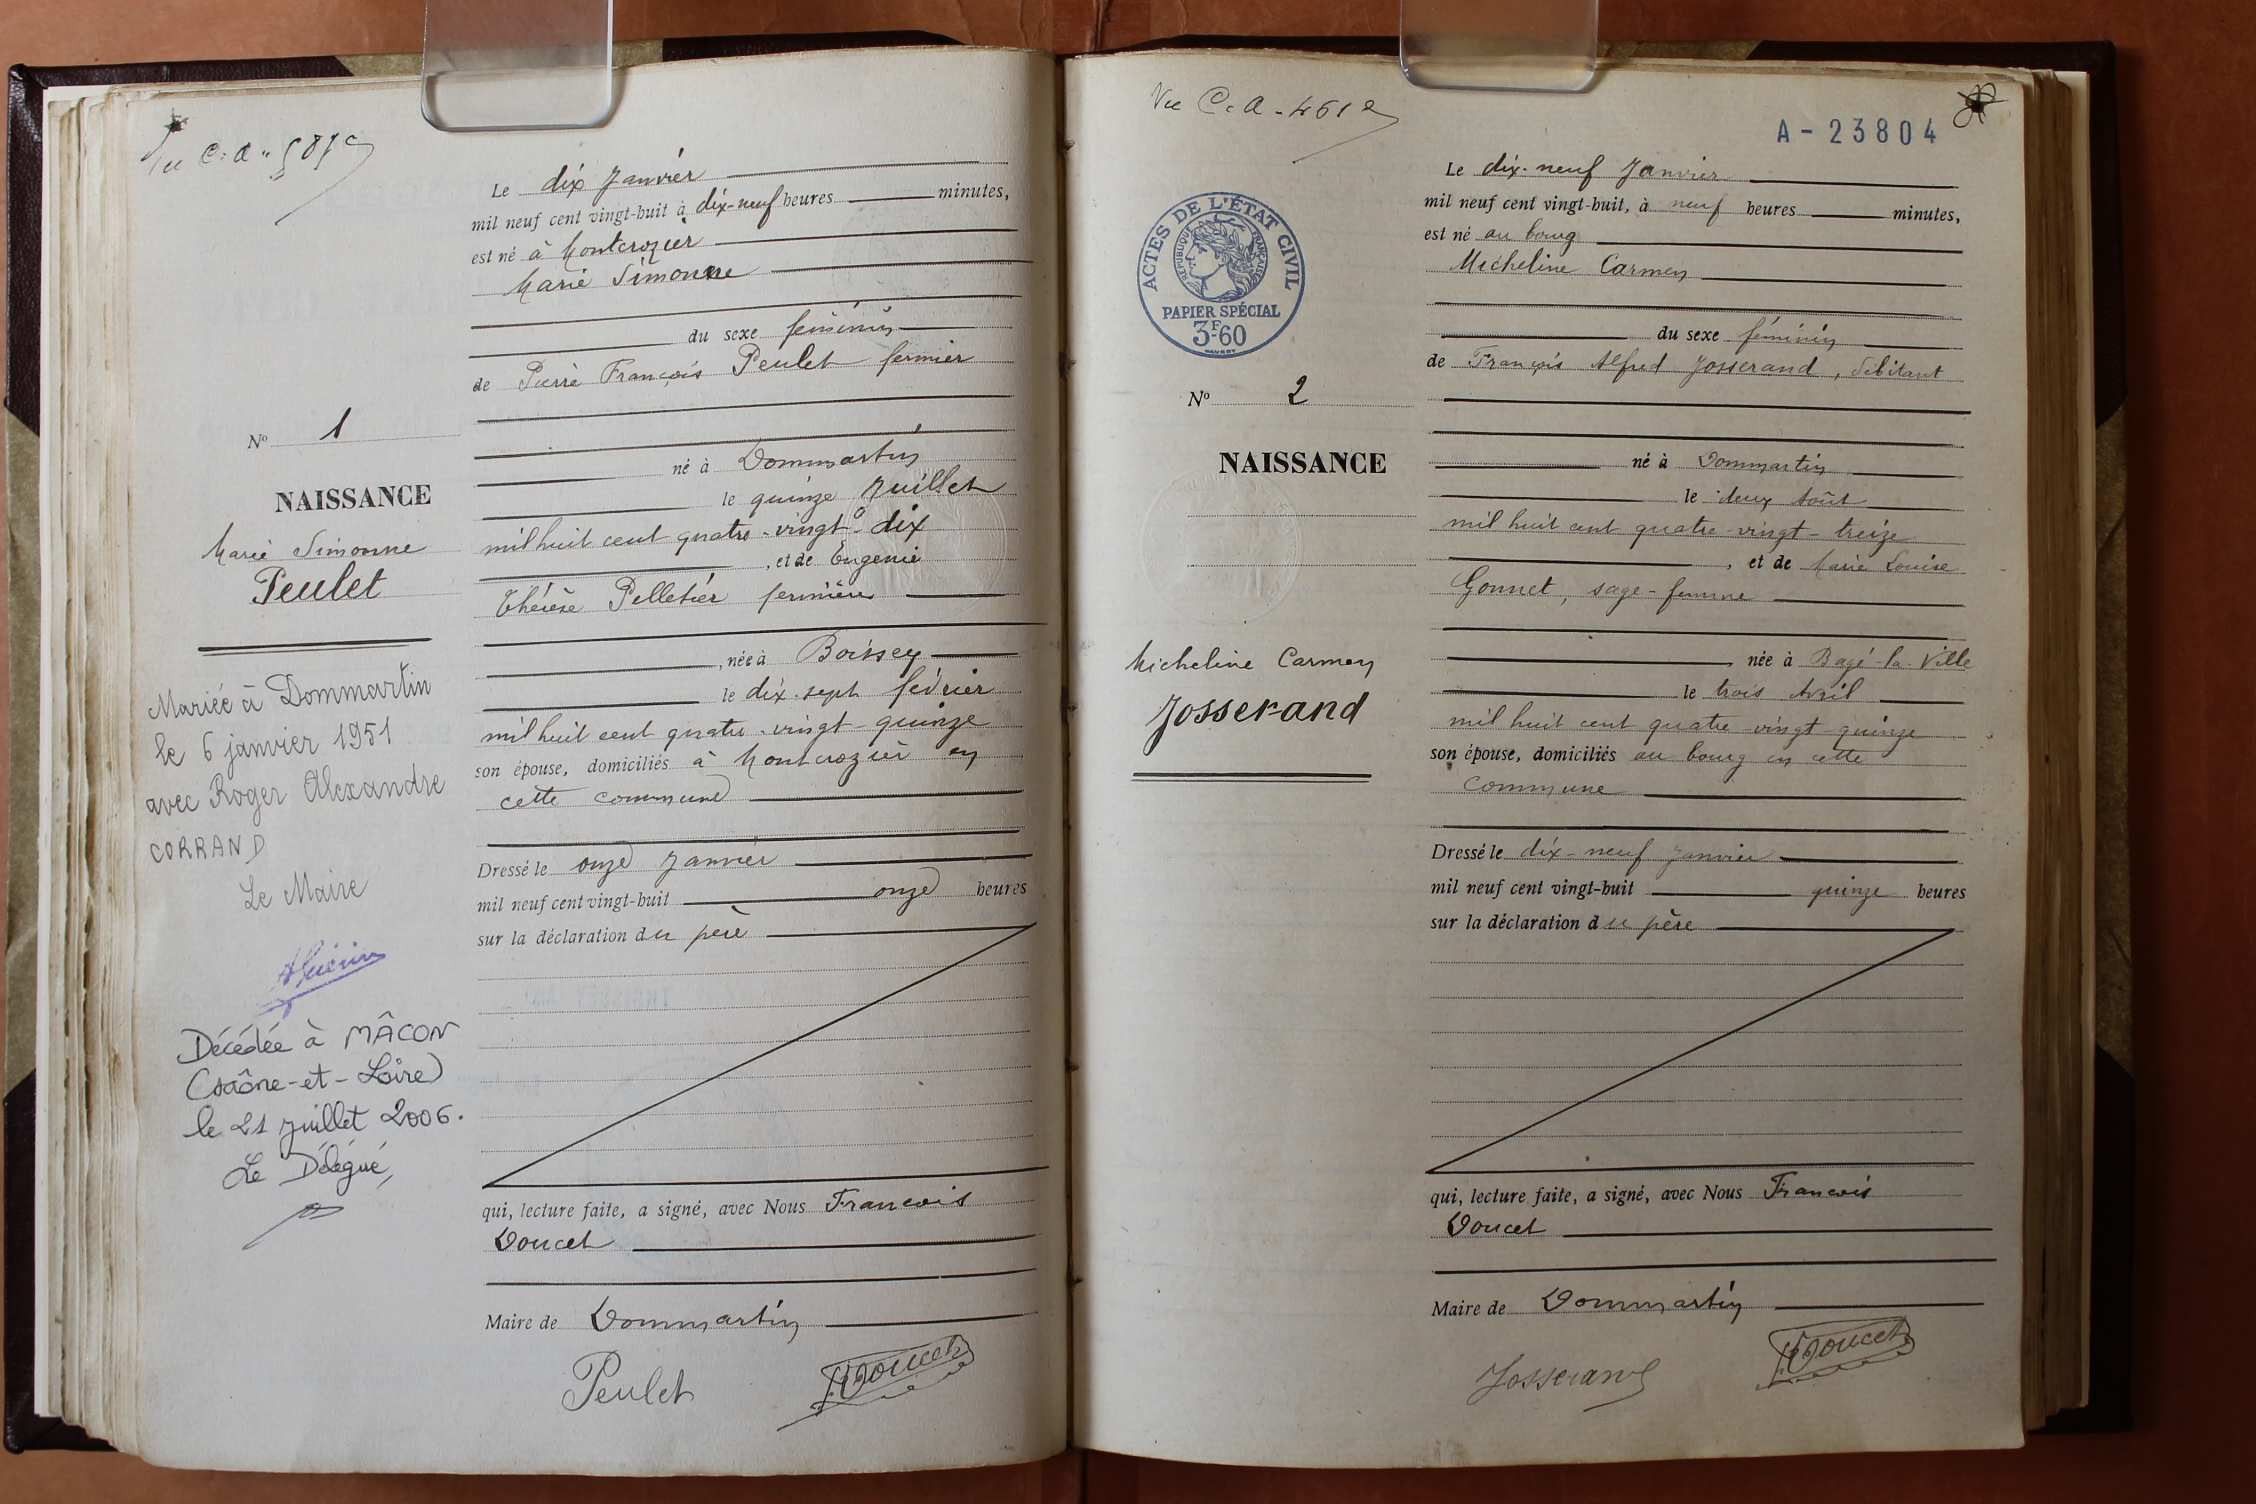 Vu C. a.
Le dix Janvier
mil neuf cent vingt-huit à dix-neuf heures minutes,
est né à Montcrozier
Marie Simonne
du sexe féminin
de Pierre François Peulet fermier
né à Dommartin
le quinze Juillet
mil huit cent quatre-vingt-dix
, et de Eugénie
Thérèse Pelletier fermière
, née à Boissey
le dix-sept février
mil huit cent quatre-vingt-quinze
son épouse, domiciliés à Montcrozier en
cette commune
Dressé le onze Janvier
mil neuf cent vingt-huit onze heures
sur la déclaration du père
qui, lecture faite, a signé, avec Nous François
Doucet
Maire de Dommartin
Peulet
Doucet
No 1
NAISSANCE
Marie Simonne
Peulet
Mariée à Dommartin
le 6 janvier 1951
avec Roger Alexandre
CORRAND
Le Maire
Décédée à MÂCON
(Saône-et-Loire)
le 21 juillet 2006.
Le Délégué,
Vu C. a. 4612
A-23804
ACTES DE L'ÉTAT CIVIL
RÉPUBLIQUE FRANÇAISE
PAPIER SPÉCIAL
3F60
No 2
NAISSANCE
Micheline Carmen
Josserand
Le dix-neuf Janvier
mil neuf cent vingt-huit, à neuf heures minutes,
est né au bourg
Micheline Carmen
du sexe féminin
de François Alfred Josserand, débitant
né à Dommartin
le deux Août
mil huit cent quatre-vingt-treize
, et de Marie Louise
Gonnet, sage-femme
née à Bagé-la-Ville
le trois Avril
mil huit cent quatre-vingt-quinze
son épouse, domiciliés au bourg en cette
commune
Dressé le dix-neuf janvier
mil neuf cent vingt-huit quinze heures
sur la déclaration du père
qui, lecture faite, a signé, avec Nous François
Doucet
Maire de Dommartin
Josserand
Doucet